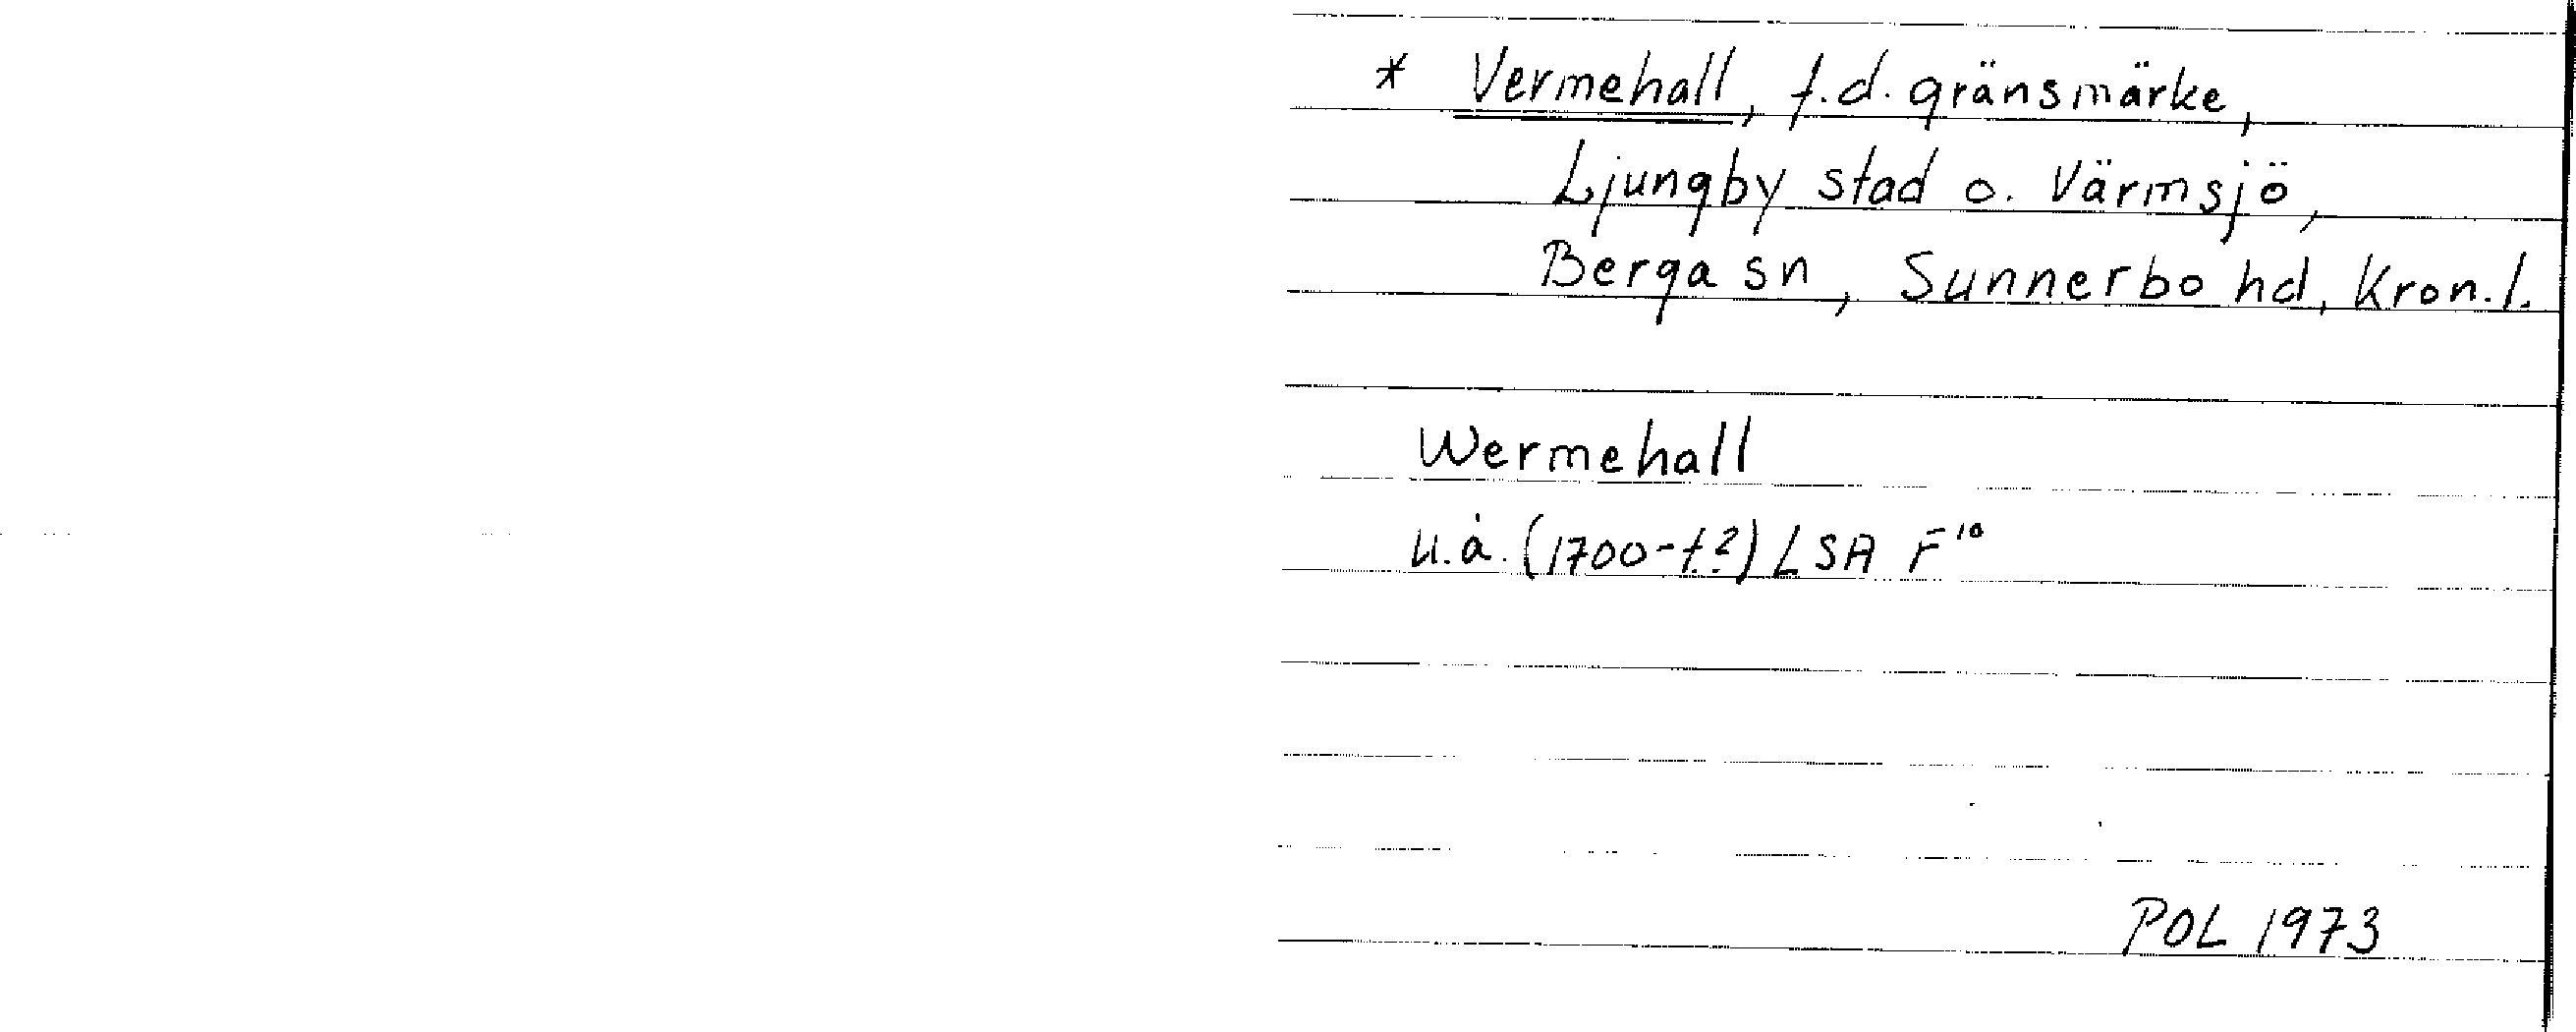 * Vermehall, f.d. gränsmärke,
Ljungby stad o. Värmsjö,
Berga sn, Sunnerbo hd, Kron. l.
Wermehall
u.å. (1700-t?) LSA F¹⁰
POL 1973